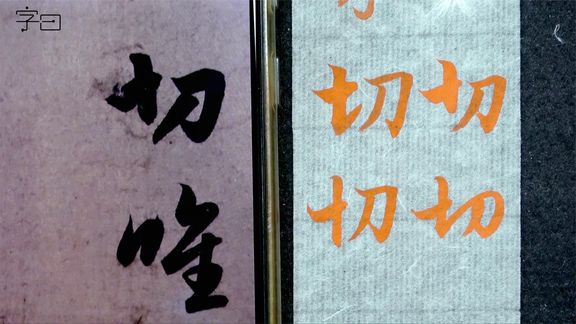 字曰
切
唯
切切
切切